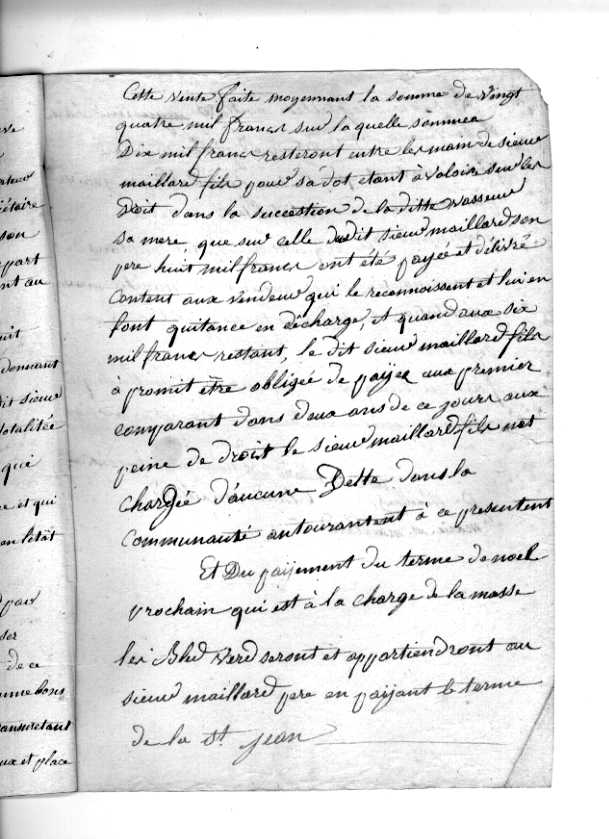 Cette vente faite moyennant la somme de vingt
quatre mil francs sur la quelle somme
Dix mil francs resteront entre les main de sieur
maillard fils pour sa dot, etant à valoir sur les
Droit dans la succession de la ditte vasseur
sa mere, que sur celle dudit sieur maillard son
pere huit mil francs ont été payée et délivré
content aux vendeur qui le reconnoissent et lui en
font quitance en décharge, et quand aux six
mil francs restant, le dit sieur maillard fils
à promit être obligée de payer aux premier
comparant dans deux ans de ce jours aux
peine de droit le sieur maillard fils net
chargée d'aucune Dette dans la
communauté à ce présentent
Et Du paijement du terme de noel
prochain qui est à la charge de la masse
les Bled verd seront et appartiendront au
sieur maillard pere en paijant le terme
de la St jean
part
nt au
uit
dit sieur
totalitée
qui
ce et qui
en l'état
de ce
ux et place